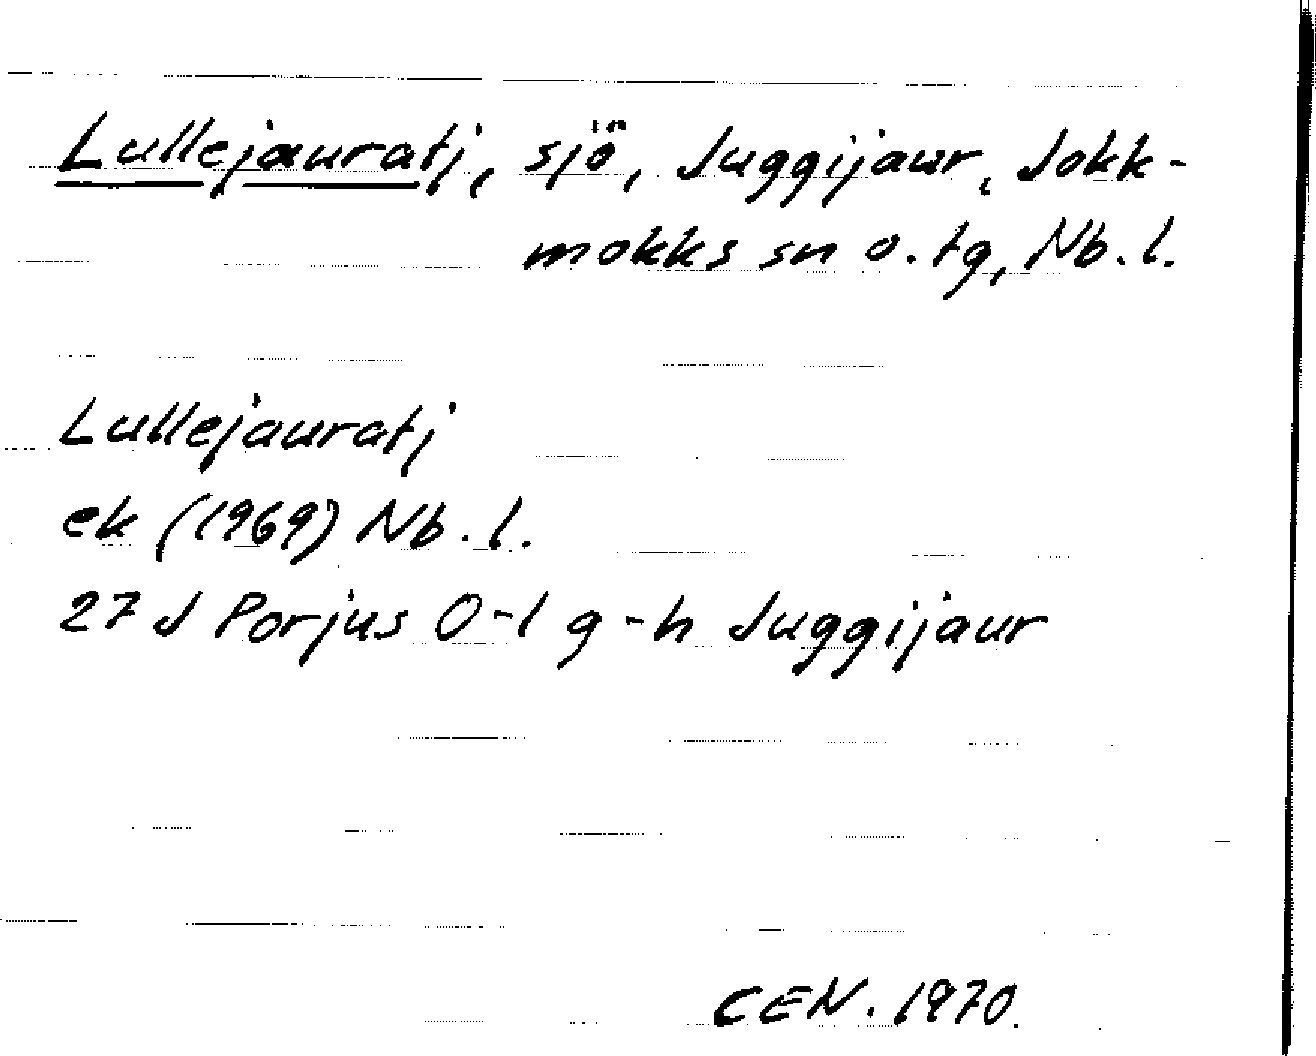 Lullejauratj, sjö, Juggijaur, Jokk-
mokks sn o. tg, Nb. l.
Lullejauratj
ek (1969) Nb. l.
27 J Porjus 0-1 g-h Juggijaur
CEN. 1970.